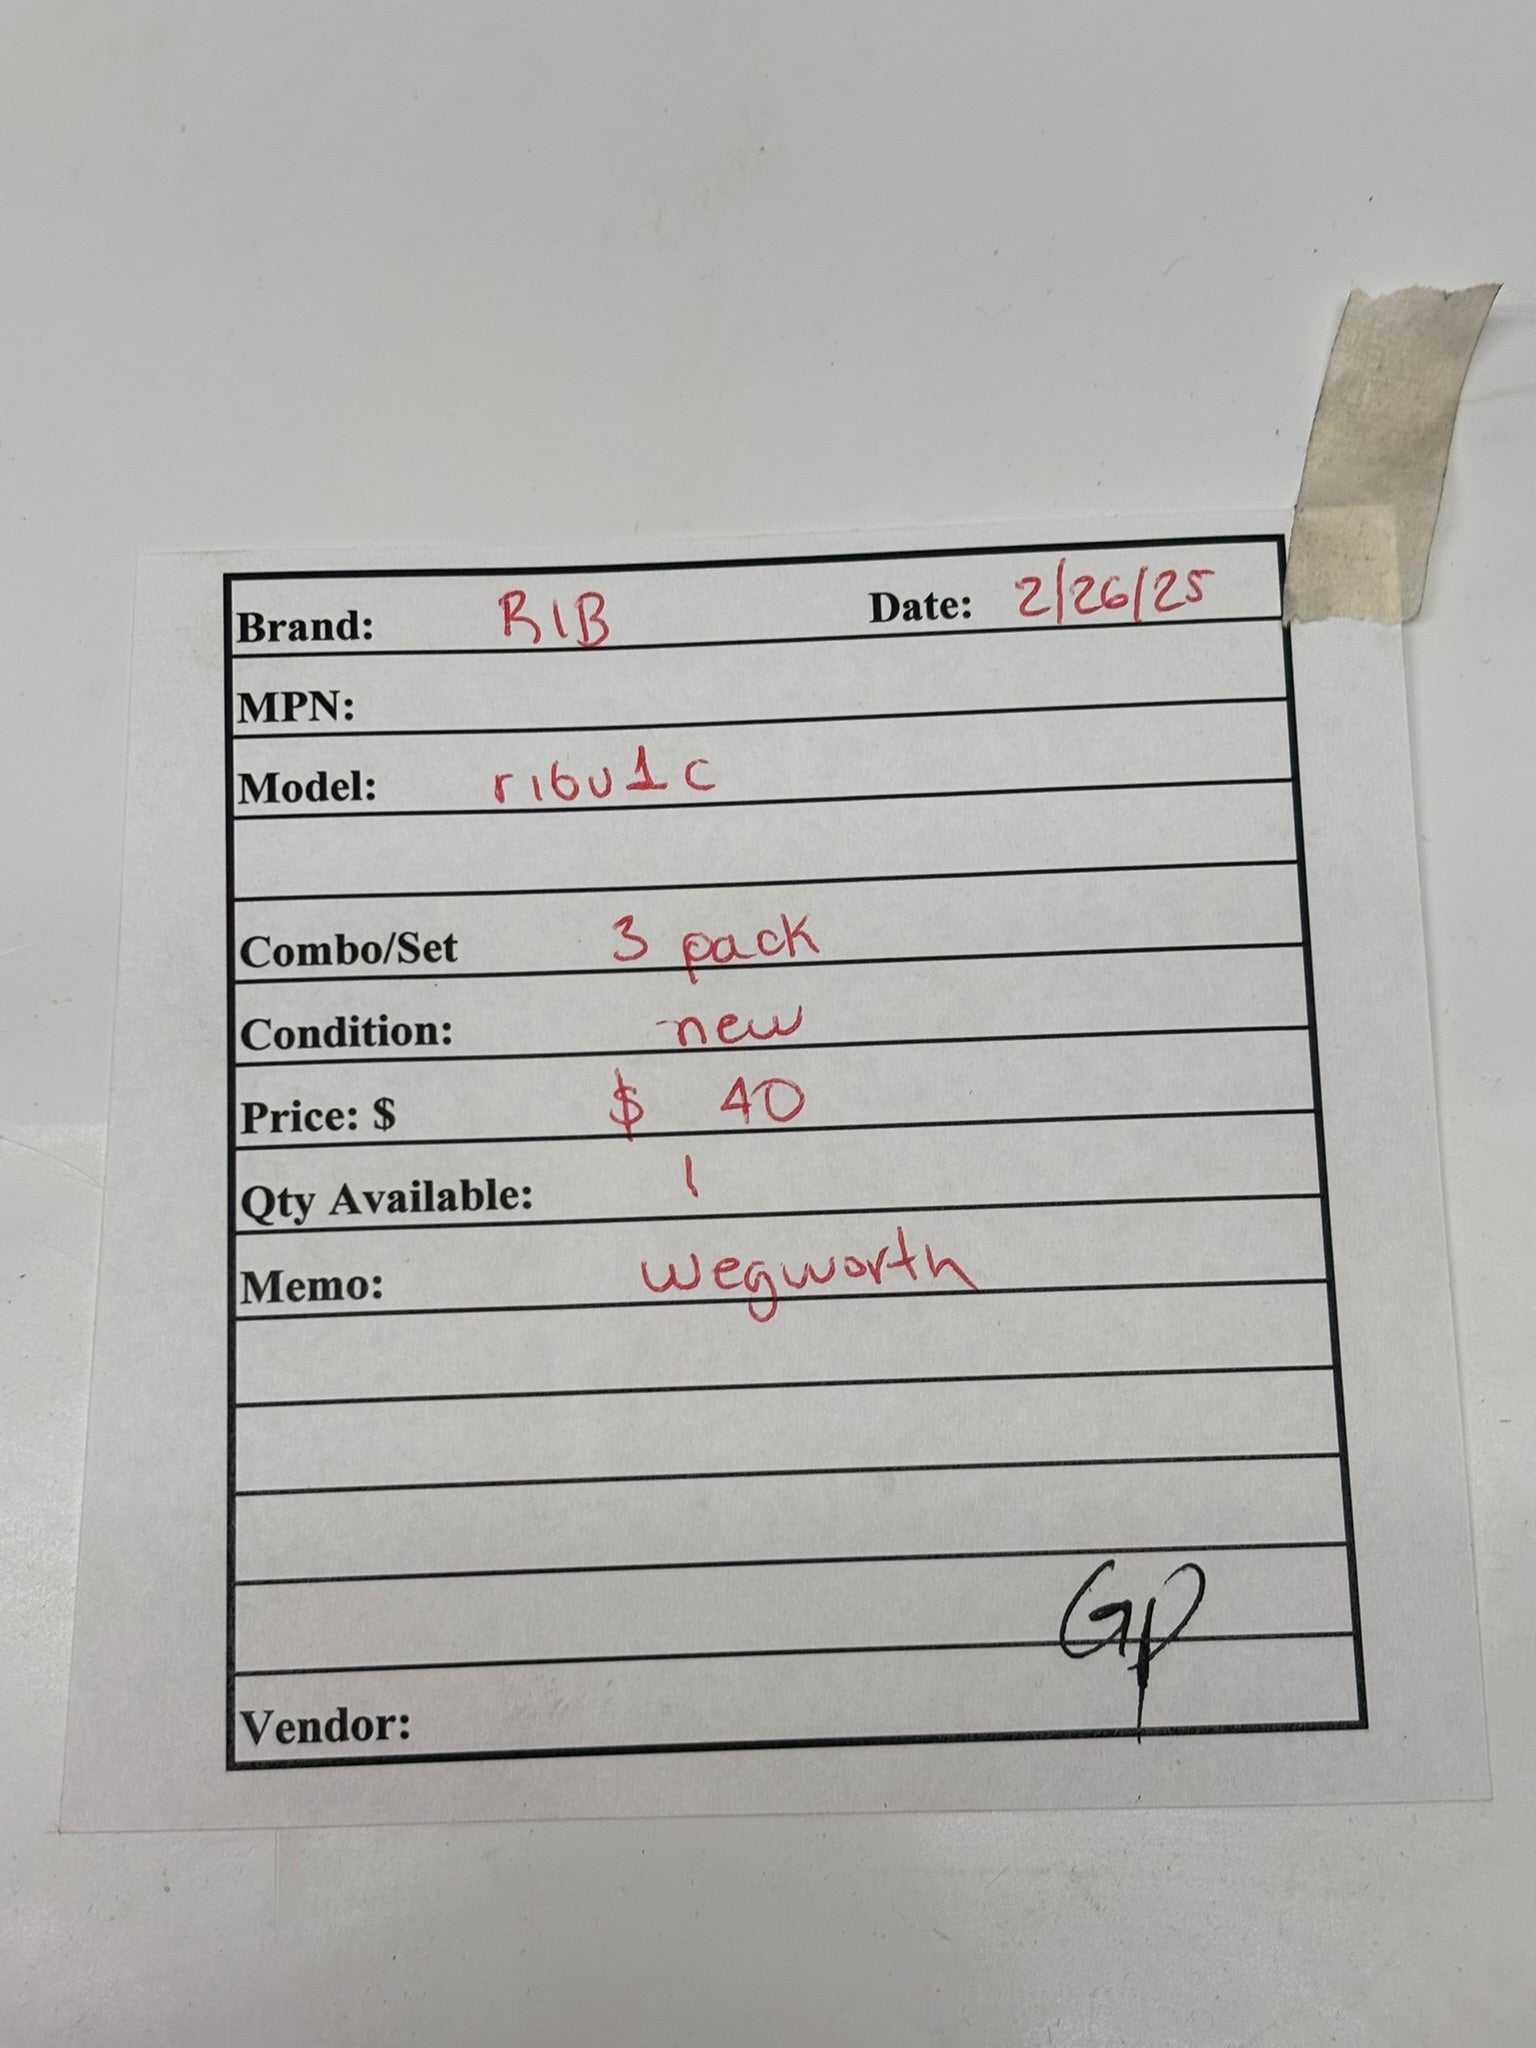 Brand: RIB Date: 2/26/25
MPN:
Model: ribu1c
Combo/Set 3 pack
Condition: new
Price: $ $ 40
Qty Available: 1
Memo: wegworth
GP
Vendor: